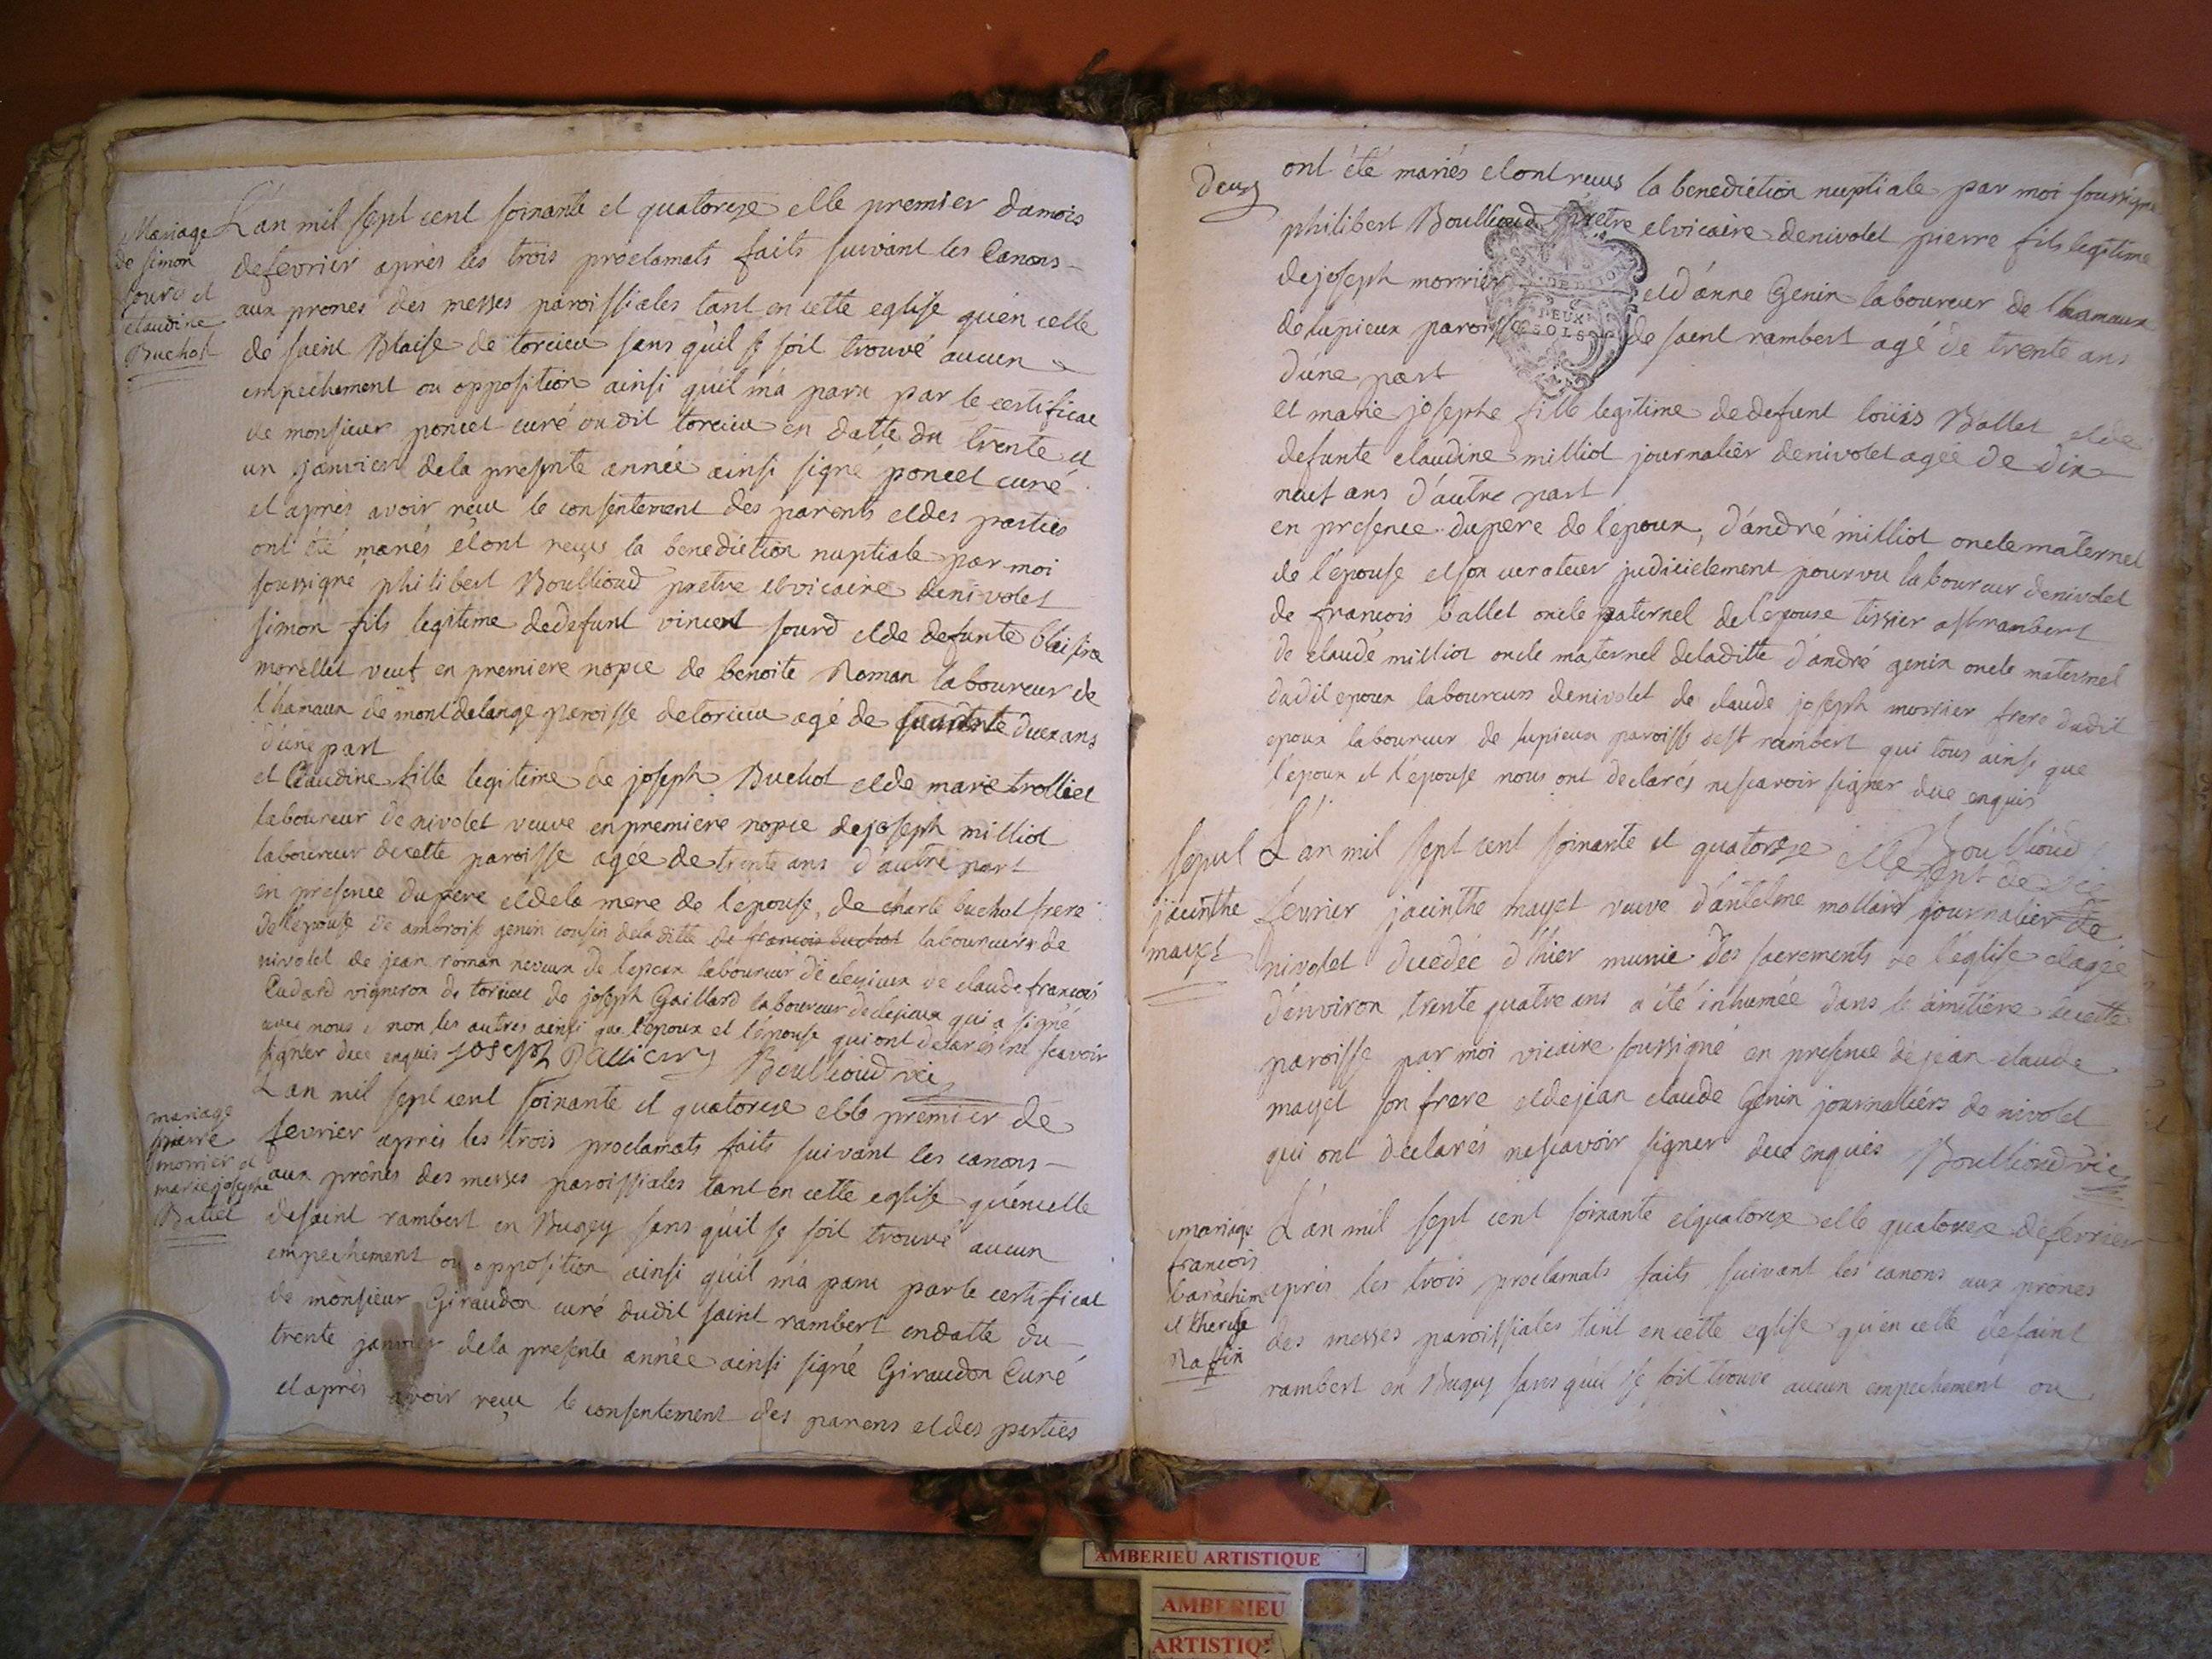 Mariage
de simon
sourd et
claudine
Buchot
L'an mil sept cent soixante et quatorze et le premier du mois
de fevrier après les trois proclamats faits suivant les Canons
aux prones des messes paroissiales tant en cette eglise qu'en celle
de saint Blaise de torcieu sans qu'il se soit trouvé aucun
empechement ou opposition ainsi qu'il m'a paru par le certificat
de monsieur poncet curé dudit torcieu en datte du trente et
un janvier de la presente année ainsi signé poncet curé
et après avoir reçu le consentement des parents et des parties
ont été mariés et ont reçus la benediction nuptiale par moi
soussigné philibert Boullioud pretre et vicaire de nivolet
simon fils legitime de defunt vincent sourd et de defunte
morellet veuf en premiere nopce de benoite Roman laboureur de
l'hamaux de montdelange paroisse de torcieu agé de duex ans
d'une part
et Claudine fille legitime de joseph Buchot et de marie trolliet
laboureur de nivolet veuve en premiere nopce de joseph milliot
laboureur de cette paroisse agée de trente ans d'autre part
en presence du pere et de la mere de l'epouse, de charle buchot frere
de l'epouse de ambroise genin cousin de la ditte de francois buchot laboureurs de
nivolet de jean roman neveux de l'epoux laboureur de cleyzieux de claude francois
Cudard vigneron de torcieu de joseph Gaillard laboureur de clesieux qui a signé
avec nous et non les autres ainsi que l'epoux et l'epouse qui ont declarés ne scavoir
signer duee enquis joseph Boullioud vic
mariage
pierre
morrier et
marie josephe
Ballet
L'an mil sept cent soixante et quatorze et le premier de
fevrier après les trois proclamats faits suivant les canons
aux prônes des messes paroissiales tant en cette eglise qu'en celle
de saint rambert en Bugey sans qu'il se soit trouvé aucun
empechement ou opposition ainsi qu'il m'a paru par le certificat
de monsieur Giraudon curé dudit saint rambert en datte du
trente janvier de la presente année ainsi signé Giraudon Curé
et après avoir reçu le consentement des parens et des parties
deux
ont été mariés et ont reçus la benediction nuptiale par moi soussigné
philibert Boullioud pretre et vicaire de nivolet pierre fils legitime
de joseph morrier et d'anne Genin laboureur de l'hamaux
de lupieux paroisse de saint rambert agé de trente ans
d'une part
DEUX
SOLS
et marie josephe fille legitime de defunt loüis Ballet et de
defunte claudine milliot journalier de nivolet agée de dix
neuf ans d'autre part
en presence du pere de l'epoux, d'andré milliot oncle maternel
de l'epouse et son curateur judiciëlement pourvu laboureur de nivolet
de francois ballet oncle paternel de l'epouse tissier a st rambert
de claude milliot oncle maternel de la ditte d'andré genin oncle maternel
dudit epoux laboureurs de nivolet de claude joseph morrier frere dudit
epoux laboureur de lupieux paroisse de st rambert qui tous ainsi que
l'epoux et l'épouse nous ont declarés ne scavoir signer duee enquis
Boullioud
vic
sepul
jacinthe
mayet
L'an mil sept cent soixante et quatorze et le sept de
fevrier jacinthe mayet veuve d'antelme mollard journalier de
nivolet decedée d'hier munie des sacrements de l'eglise et agée
d'environ trente quatre ans a été inhumée dans le cimitière de cette
paroisse par moi vicaire soussigné en presence de jean claude
mayet son frere et de jean claude Genin journaliers de nivolet
qui ont declarés ne scavoir signer duee enquis Boullioud vic
mariage
francois
barachin
et therese
Raffin
L'an mil sept cent soixante et quatorze et le quatorze de fevrier
après les trois proclamats faits suivant les canons aux prones
des messes paroissiales tant en cette eglise qu'en celle de saint
rambert en Bugey sans qu'il se soit trouvé aucun empechement ou
AMBERIEU ARTISTIQUE
AMBERIEU
ARTISTIQUE